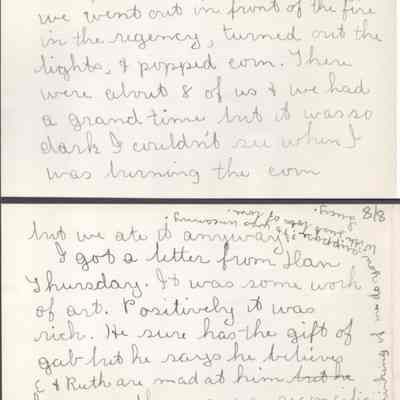 we went out in front of the fire
in the regency, turned out the
lights, & popped corn. There
were about 8 of us & we had
a grand time but it was so
dark I couldn't see when I
was burning the corn
but we ate it anyway.
I got a letter from Ilan
Thursday. It was some work
of art. Positively it was
rich. He sure has the gift of
gab but he says he believes
C & Ruth are mad at him but he
8/8
lots of love.
Lucy.